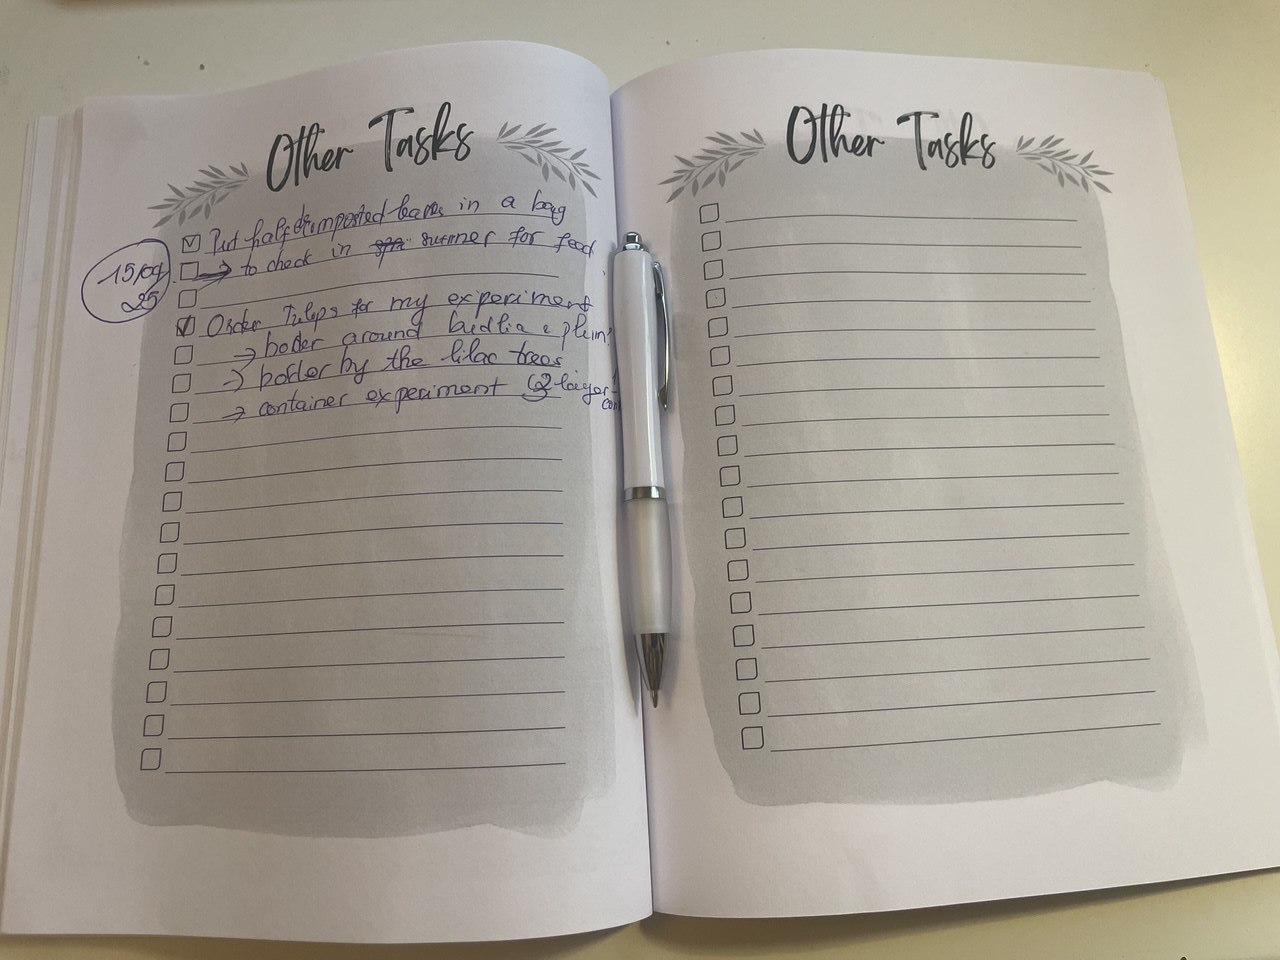 Other Tasks
Put half decomposted leaves in a bag
→ to check in summer for food
25
Order Tulips for my experiment
→ boder around budlia e plum
→ boder by the lilac trees
→ container experiment (3 layer
Other Tasks